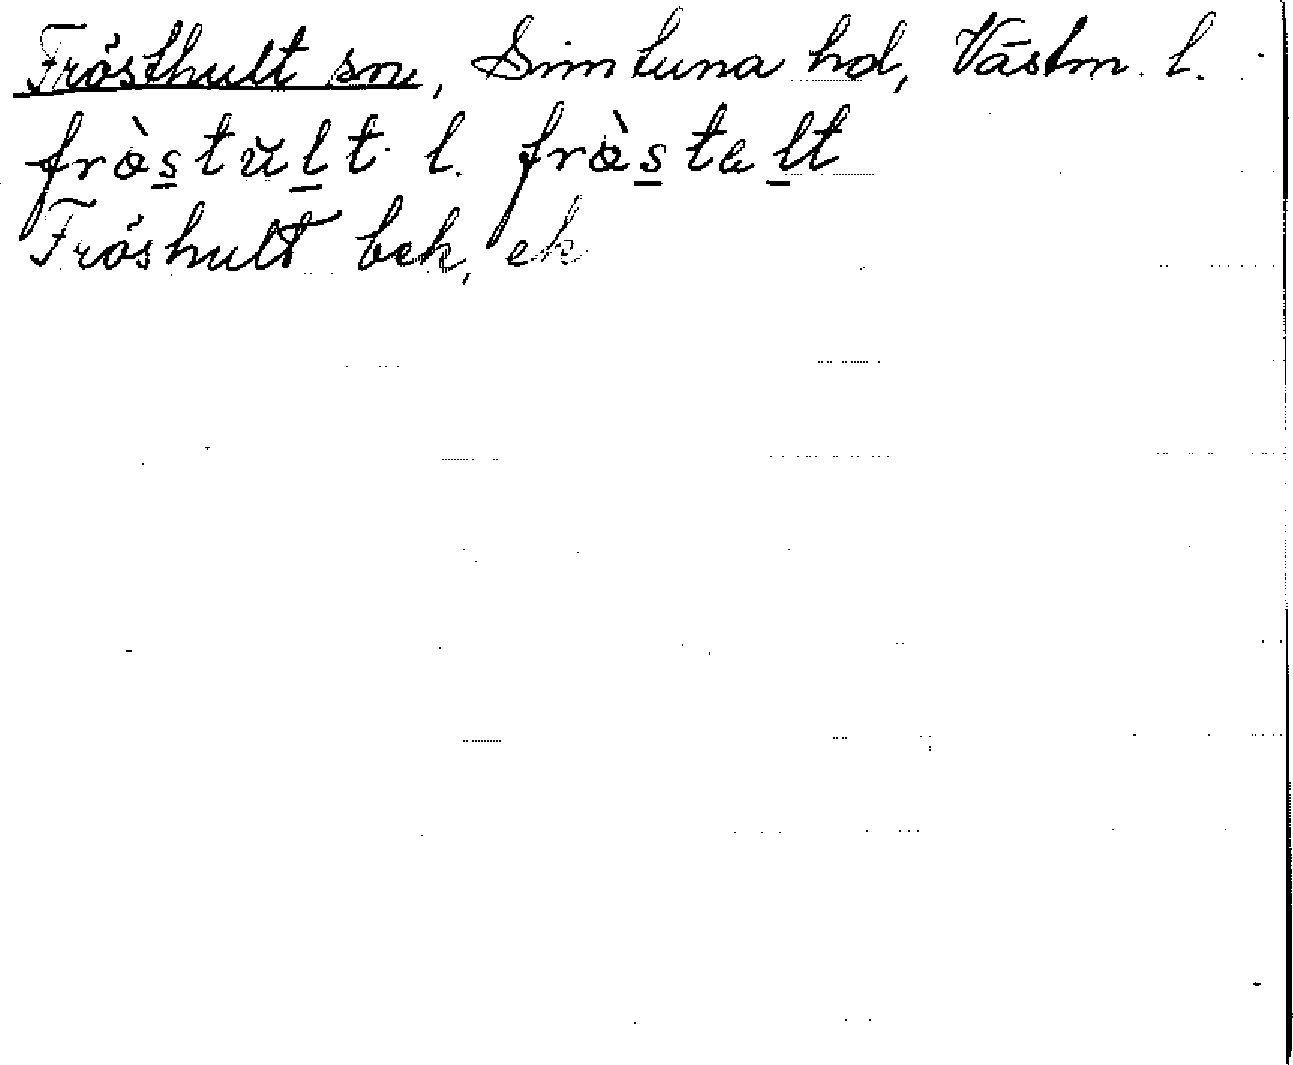 Frösthult sn, Simtuna hd, Västm. l.
frö̀stŭlt l. frö̀stalt
Fröshult bek, ek